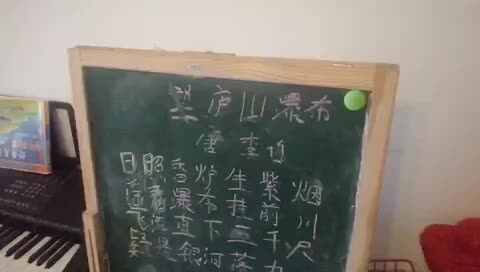 望庐山瀑布
唐 李白
日照香炉生紫烟
遥看瀑布挂前川
飞流直下三千尺
疑是银河落九